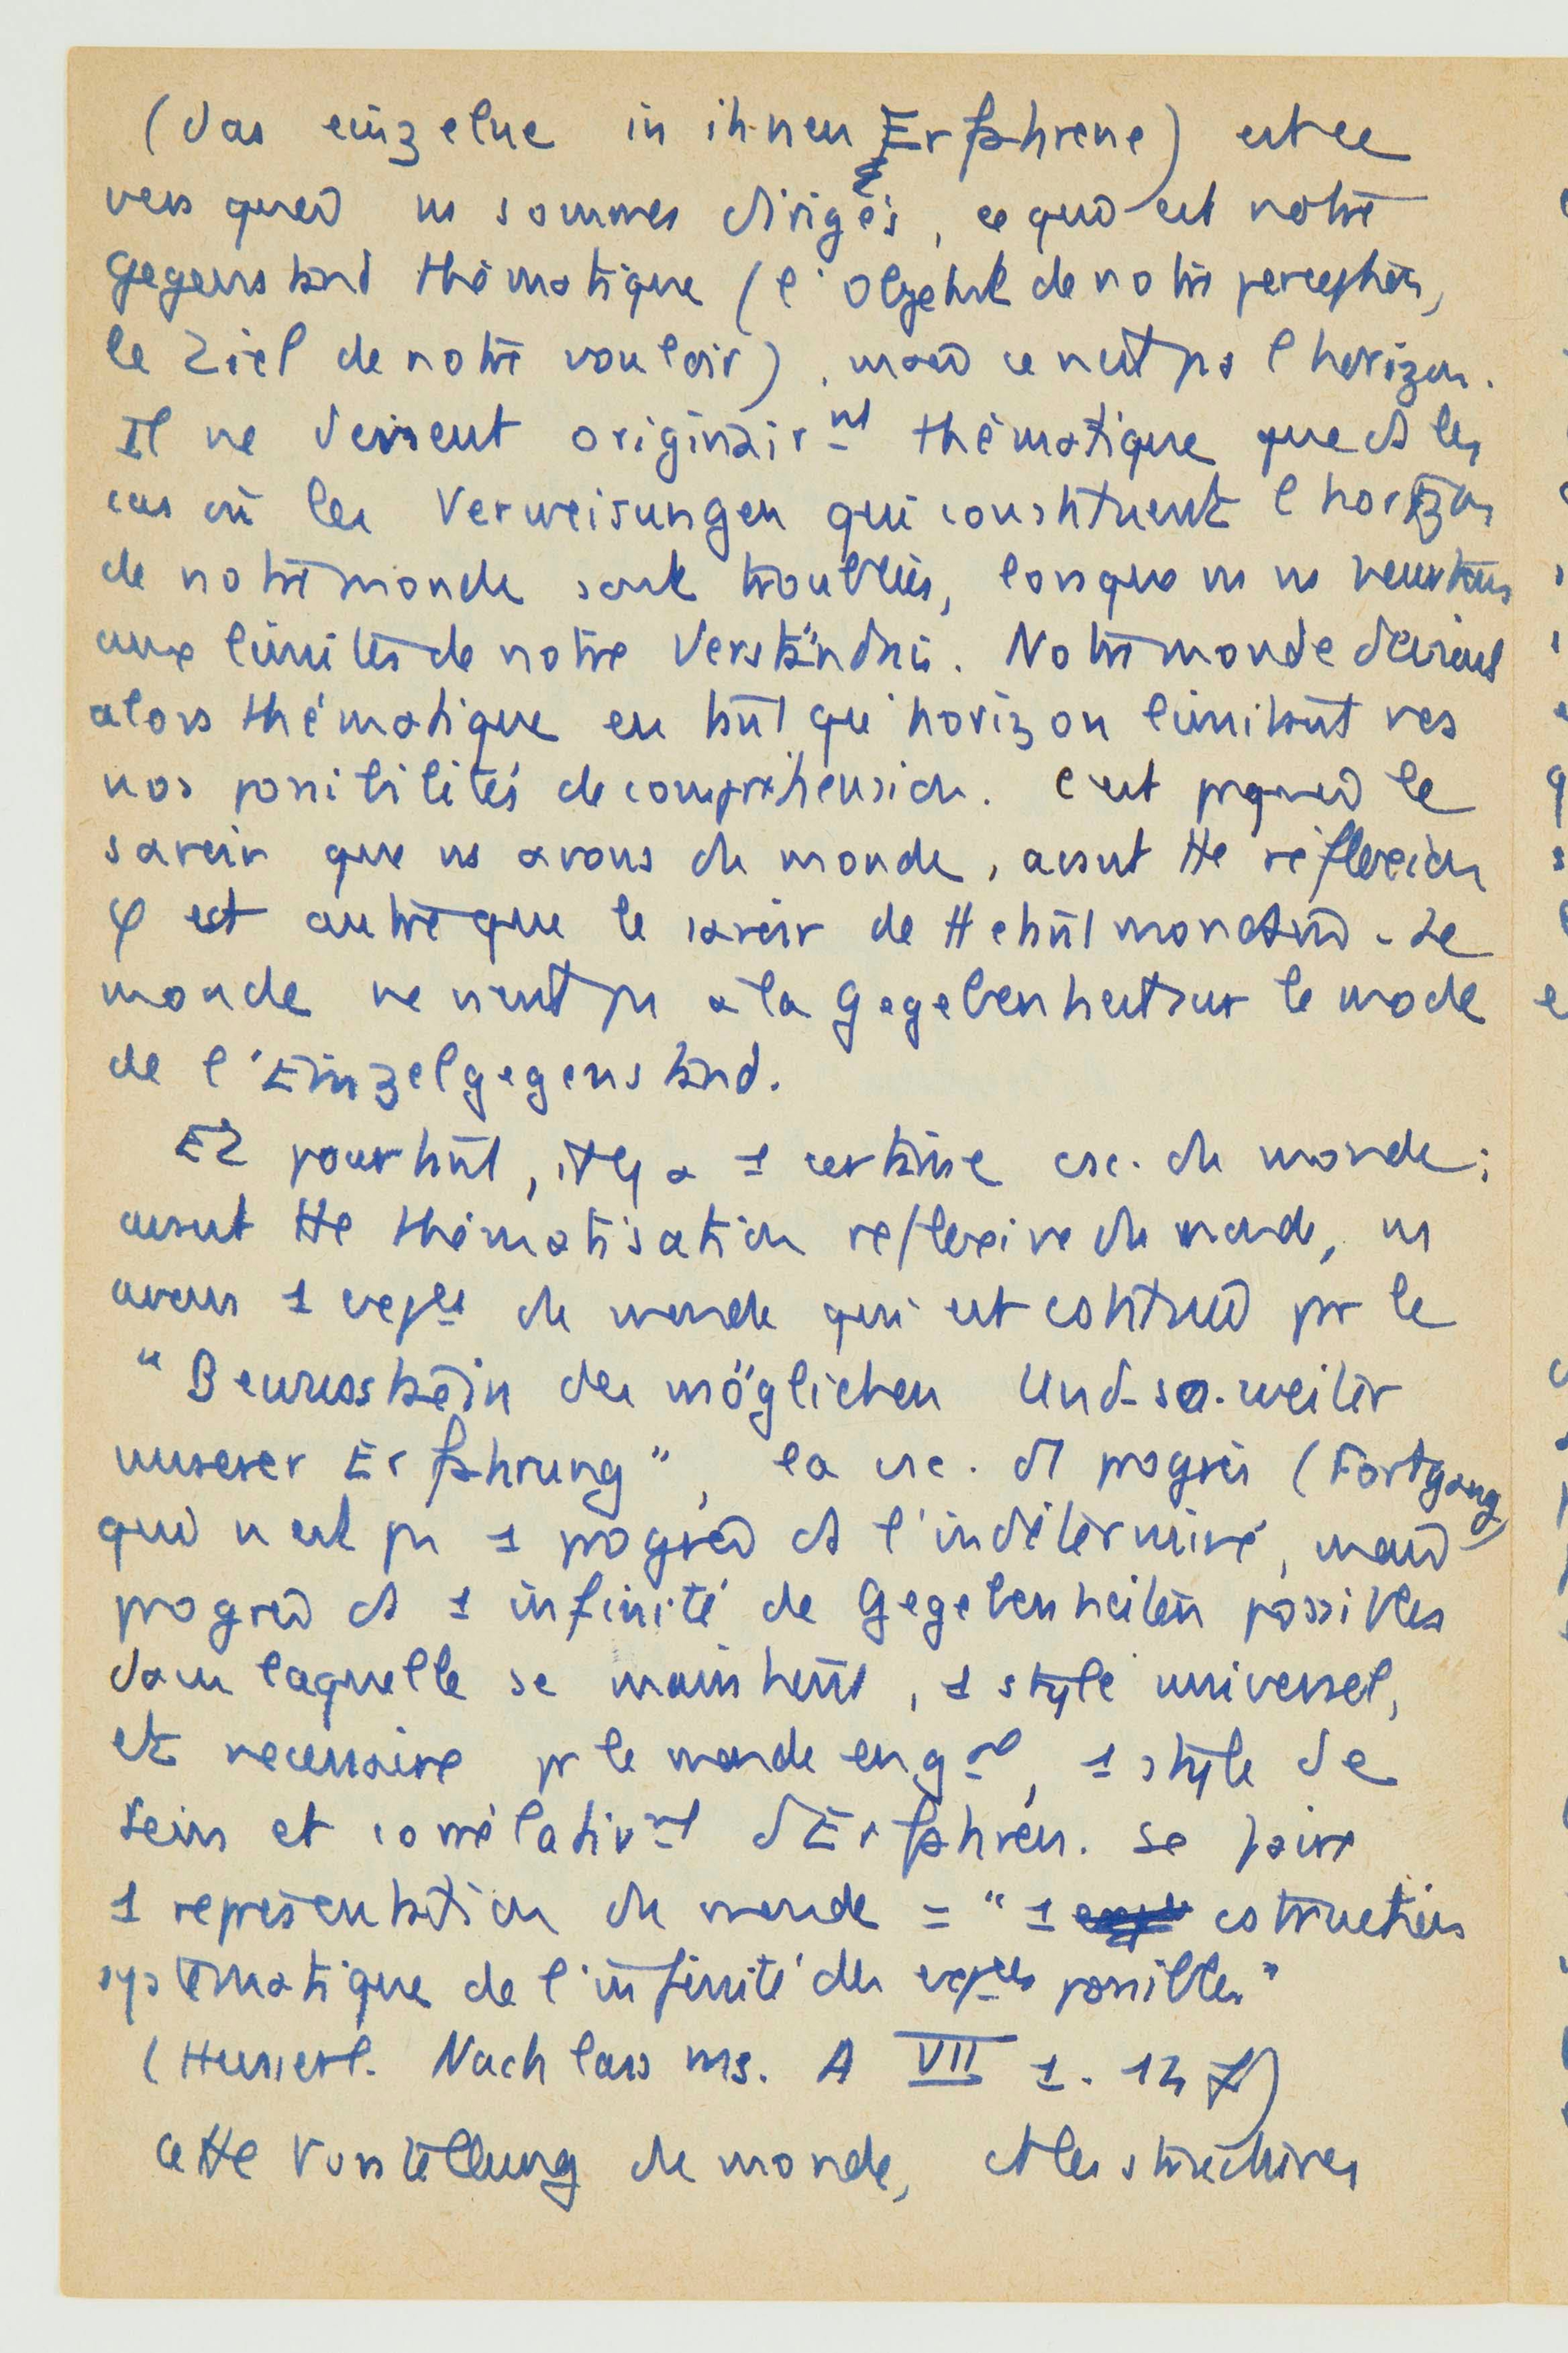 (das einzelne in ihnen Erfahrene) est ce
vers quoi ns sommes dirigés, ce qui est notre
Gegenstand thématique (l'Objekt de notre perception,
le Ziel de notre vouloir), mais ce n'est pas l'horizon.
Il ne devient originair_nt thématique que ds les
cas où les Verweisungen qui constituent l'horizon
de notre monde sont troublées, lorsque ns ns heurtons
aux limites de notre Verständnis. Notre monde devient
alors thématique en tant qu'horizon limitant
nos possibilités de compréhension. C'est pquoi le
savoir que ns avons du monde, avant tte réflexion
φ est autre que le savoir de tt étant mondain. Le
monde ne vient pas à la Gegebenheit sur le mode
de l'Einzelgegenstand.
Et pourtant, il y a 1 certaine csc. du monde ;
avant tte thématisation réflexive du monde, ns
avons 1 exp_ce du monde qui est constitué par le
"Bewusstsein des möglichen Und-so-weiter
unserer Erfahrung", la csc. d'1 progrès (Fortgang)
qui n'est pas 1 progrès ds l'indéterminé, mais
progrès ds 1 infinité de Gegebenheiten possibles
dans laquelle se maintient, 1 style universel,
et nécessaire pr le monde en g_al, 1 style de
Sein et corrélativ_nt d'Erfahren. Se faire
1 représentation du monde = "1 costruction
systématique de l'infinité des exp_ces possibles"
(Husserl. Nachlass ms. A VII 1. 12 f)
cette Vorstellung du monde, ds les structures